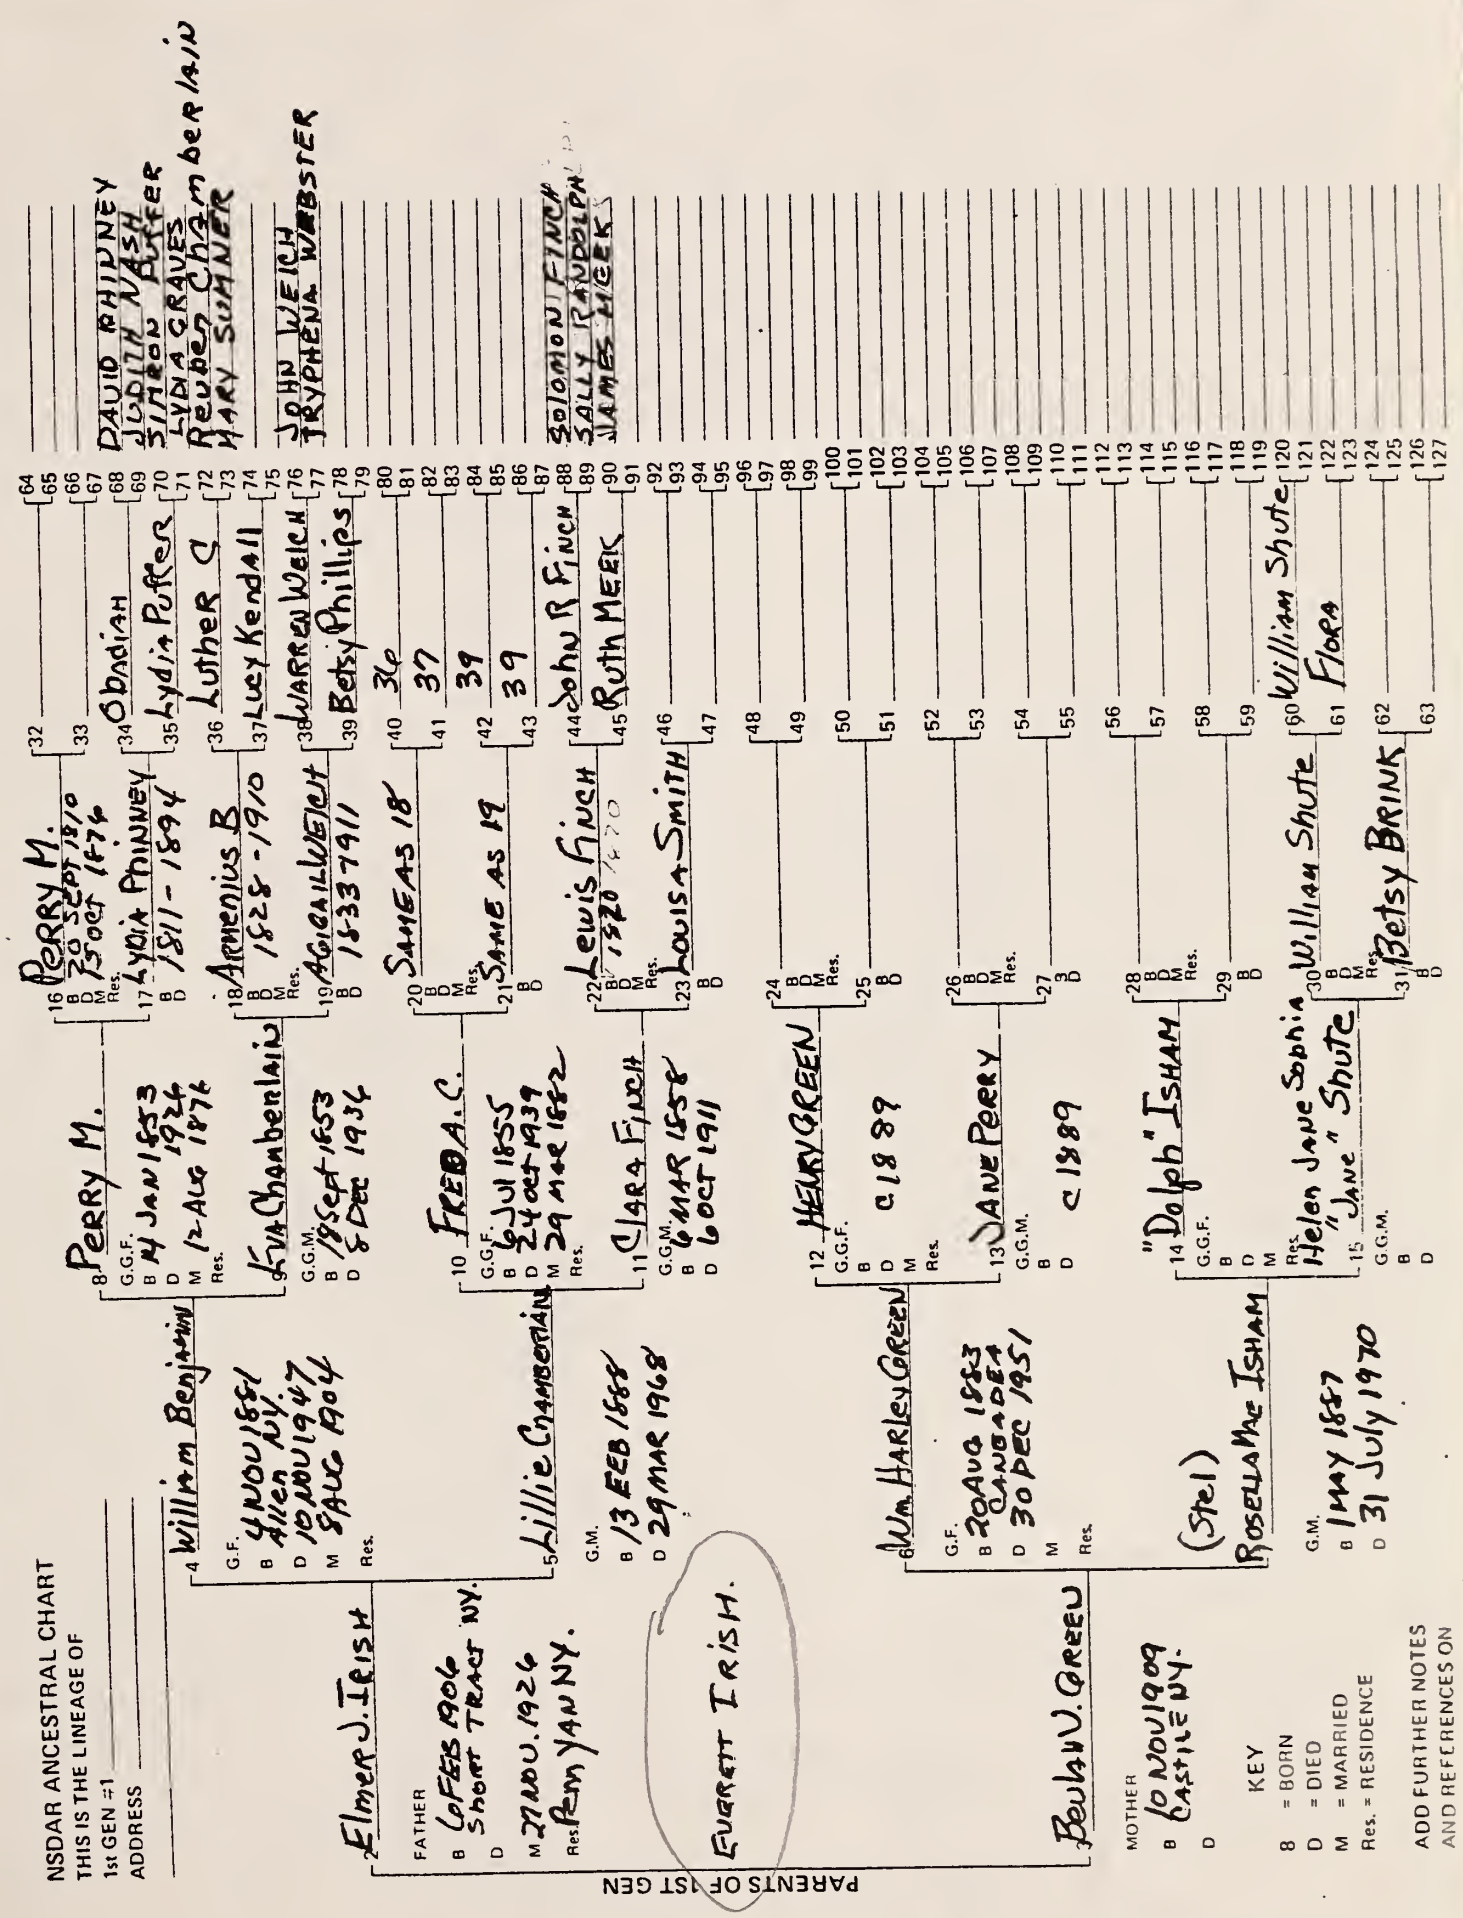 NSDAR ANCESTRAL CHART
THIS IS THE LINEAGE OF
1st GEN #1
ADDRESS
PARENTS OF 1ST GEN
2 Elmer J. Irish
FATHER
B 6 FEB 1906
Short TRACT NY.
D
M 27 NOV. 1926
Res. Penn YAN NY.
EVERETT IRISH.
3 Beulah V. GREEN
MOTHER
B 10 NOV 1909
CASTILE NY.
D
KEY
B = BORN
D = DIED
M = MARRIED
Res. = RESIDENCE
ADD FURTHER NOTES
AND REFERENCES ON
4 William Benjamin
G.F.
B 4 NOV 1881
Allen NY.
D 10 NOV 1947
M 8 AUG 1904
Res.
5 Lillie Chamberlain
G.M.
B 13 FEB 1888
D 29 MAR 1968
6 Wm. HARLEY GREEN
G.F.
B 20 AUG 1883
CANEADEA
D 30 DEC 1951
M
Res.
(Stel)
7 ROSELLA Mae ISHAM
G.M.
B 1 MAY 1887
D 31 July 1970
8 PERRY M.
G.G.F.
B 14 JAN 1853
D 1926
M 12 AUG 1876
Res.
9 EVA Chamberlain
G.G.M.
B 18 Sept 1853
D 8 DEC 1936
10 FRED A. C.
G.G.F.
B 6 Jul 1855
D 24 OCT 1939
M 29 MAR 1882
Res.
11 CLARA FINCH
G.G.M.
B 6 MAR 1858
D 6 OCT 1911
12 HENRY GREEN
G.G.F.
B C1889
D
M
Res.
13 JANE PERRY
G.G.M.
B C1889
D
14 "Dolph" ISHAM
G.G.F.
B
D
M
Res.
Helen Jane Sophia
15 "JANE" Shute
G.G.M.
B
D
16 PERRY M.
B 20 SEPT 1810
D 15 OCT 1876
M
Res.
17 LYDIA PHINNEY
B 1811-1894
D
18 ARMENIUS B
B 1828-1910
D
M
Res.
19 AGIGAIL WELCH
B 1833 7911
D
20 SAME AS 18
B
D
M
Res.
21 SAME AS 19
B
D
22 Lewis FINCH
B 1820 1870
D
M
Res.
23 LOUISA SMITH
B
D
24
B
D
M
Res.
25
B
D
26
B
D
M
Res.
27
B
D
28
B
D
M
Res.
29
B
D
30 William Shute
B
D
M
Res.
31 Betsy BRINK
B
D
32
33
34 Obadiah
35 Lydia Puffer
36 Luther C
37 Lucy Kendall
38 WARREN Welch
39 Betsy Phillips
40 36
41 37
42 39
43 39
44 John R FINCH
45 Ruth MEEK
46
47
48
49
50
51
52
53
54
55
56
57
58
59
60 William Shute
61 FLORA
62
63
64
65
66
67
68 DAVID PHINNEY
69 JUDITH NASH
70 SIMEON PUFFER
71 LYDIA GRAVES
72 Reuben Chamberlain
73 MARY SUMNER
74
75
76 JOHN WELCH
77 TRYPHENA WEBSTER
78
79
80
81
82
83
84
85
86
87
88 SOLOMON FINCH
89 SALLY RANDOLPH
90 JAMES MEEK
91
92
93
94
95
96
97
98
99
100
101
102
103
104
105
106
107
108
109
110
111
112
113
114
115
116
117
118
119
120
121
122
123
124
125
126
127